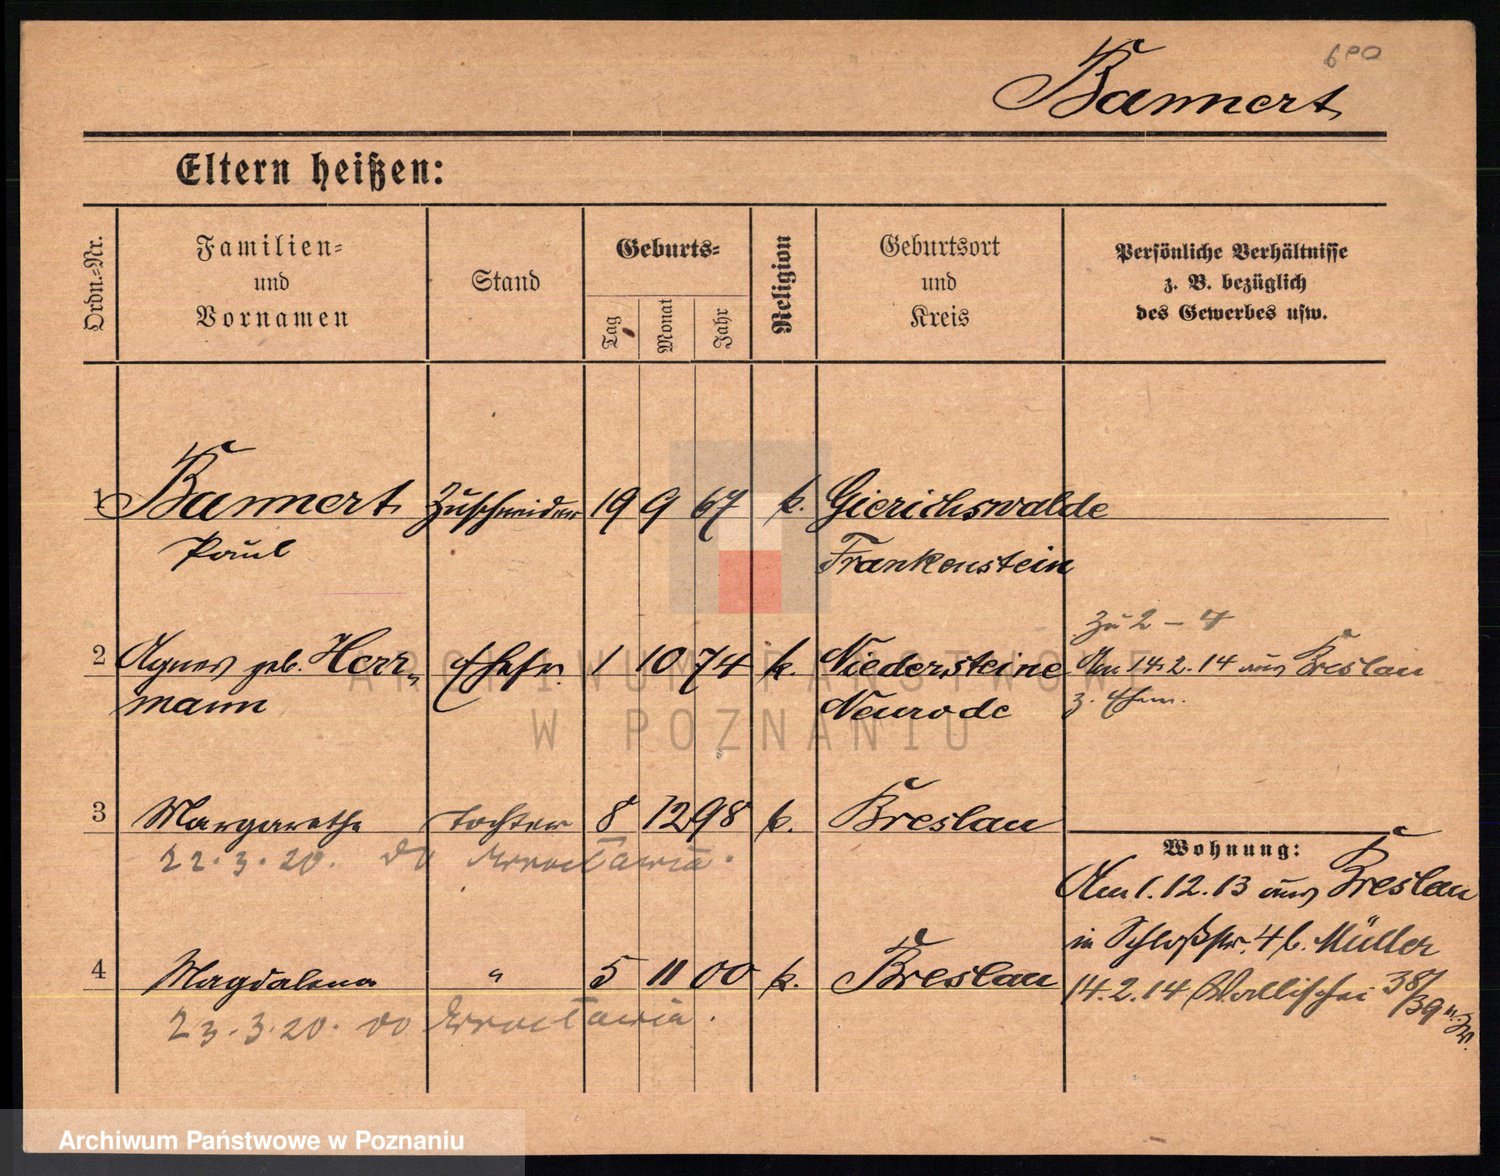 Bannert
Eltern heißen:
Ordn.-Nr.
Familien-
und
Vornamen
Stand
Geburts-
Tag
Monat
Jahr
Religion
Geburtsort
und
Kreis
Persönliche Verhältnisse
z. B. bezüglich
des Gewerbes usw.
1 Bannert Zuschneider 19 9 67 k. Gierichswalde
Paul Frankenstein
Zu 2 – 4
2 Agnes geb. Herr- Ehefr. 1 10 74 k. Niedersteine Am 14.2.14 aus Breslau
mann Neurode z. Ehem.
3 Margarethe Tochter 8 12 98 k. Breslau
Wohnung:
22.3.20. do Wrocławia.
Am 1.12.13 aus Breslau
in Schloßstr. 4 b. Müller
4 Magdalena " 5 11 00 k. Breslau
14.2.14 Wallischei 38/39
23.3.20. do Wrocławia.
ARCHIWUM PAŃSTWOWE
W POZNANIU
Archiwum Państwowe w Poznaniu